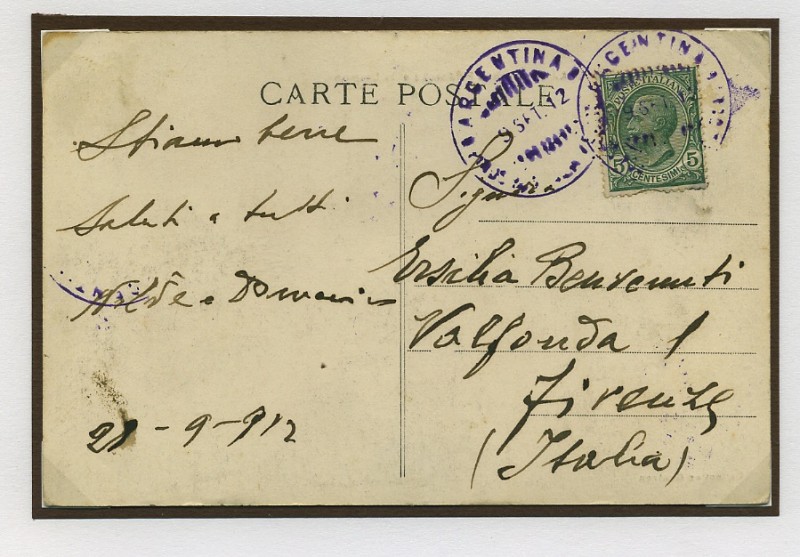 CARTE POSTALE
Stiamo bene
Saluti a tutti
28-9-912
ARGENTINA
SET. 12
ARGENTINA
SET
POSTE ITALIANE
5 CENTESIMI 5
Signora
Ersilia Benvenuti
Valfonda 1
Firenze
(Italia)